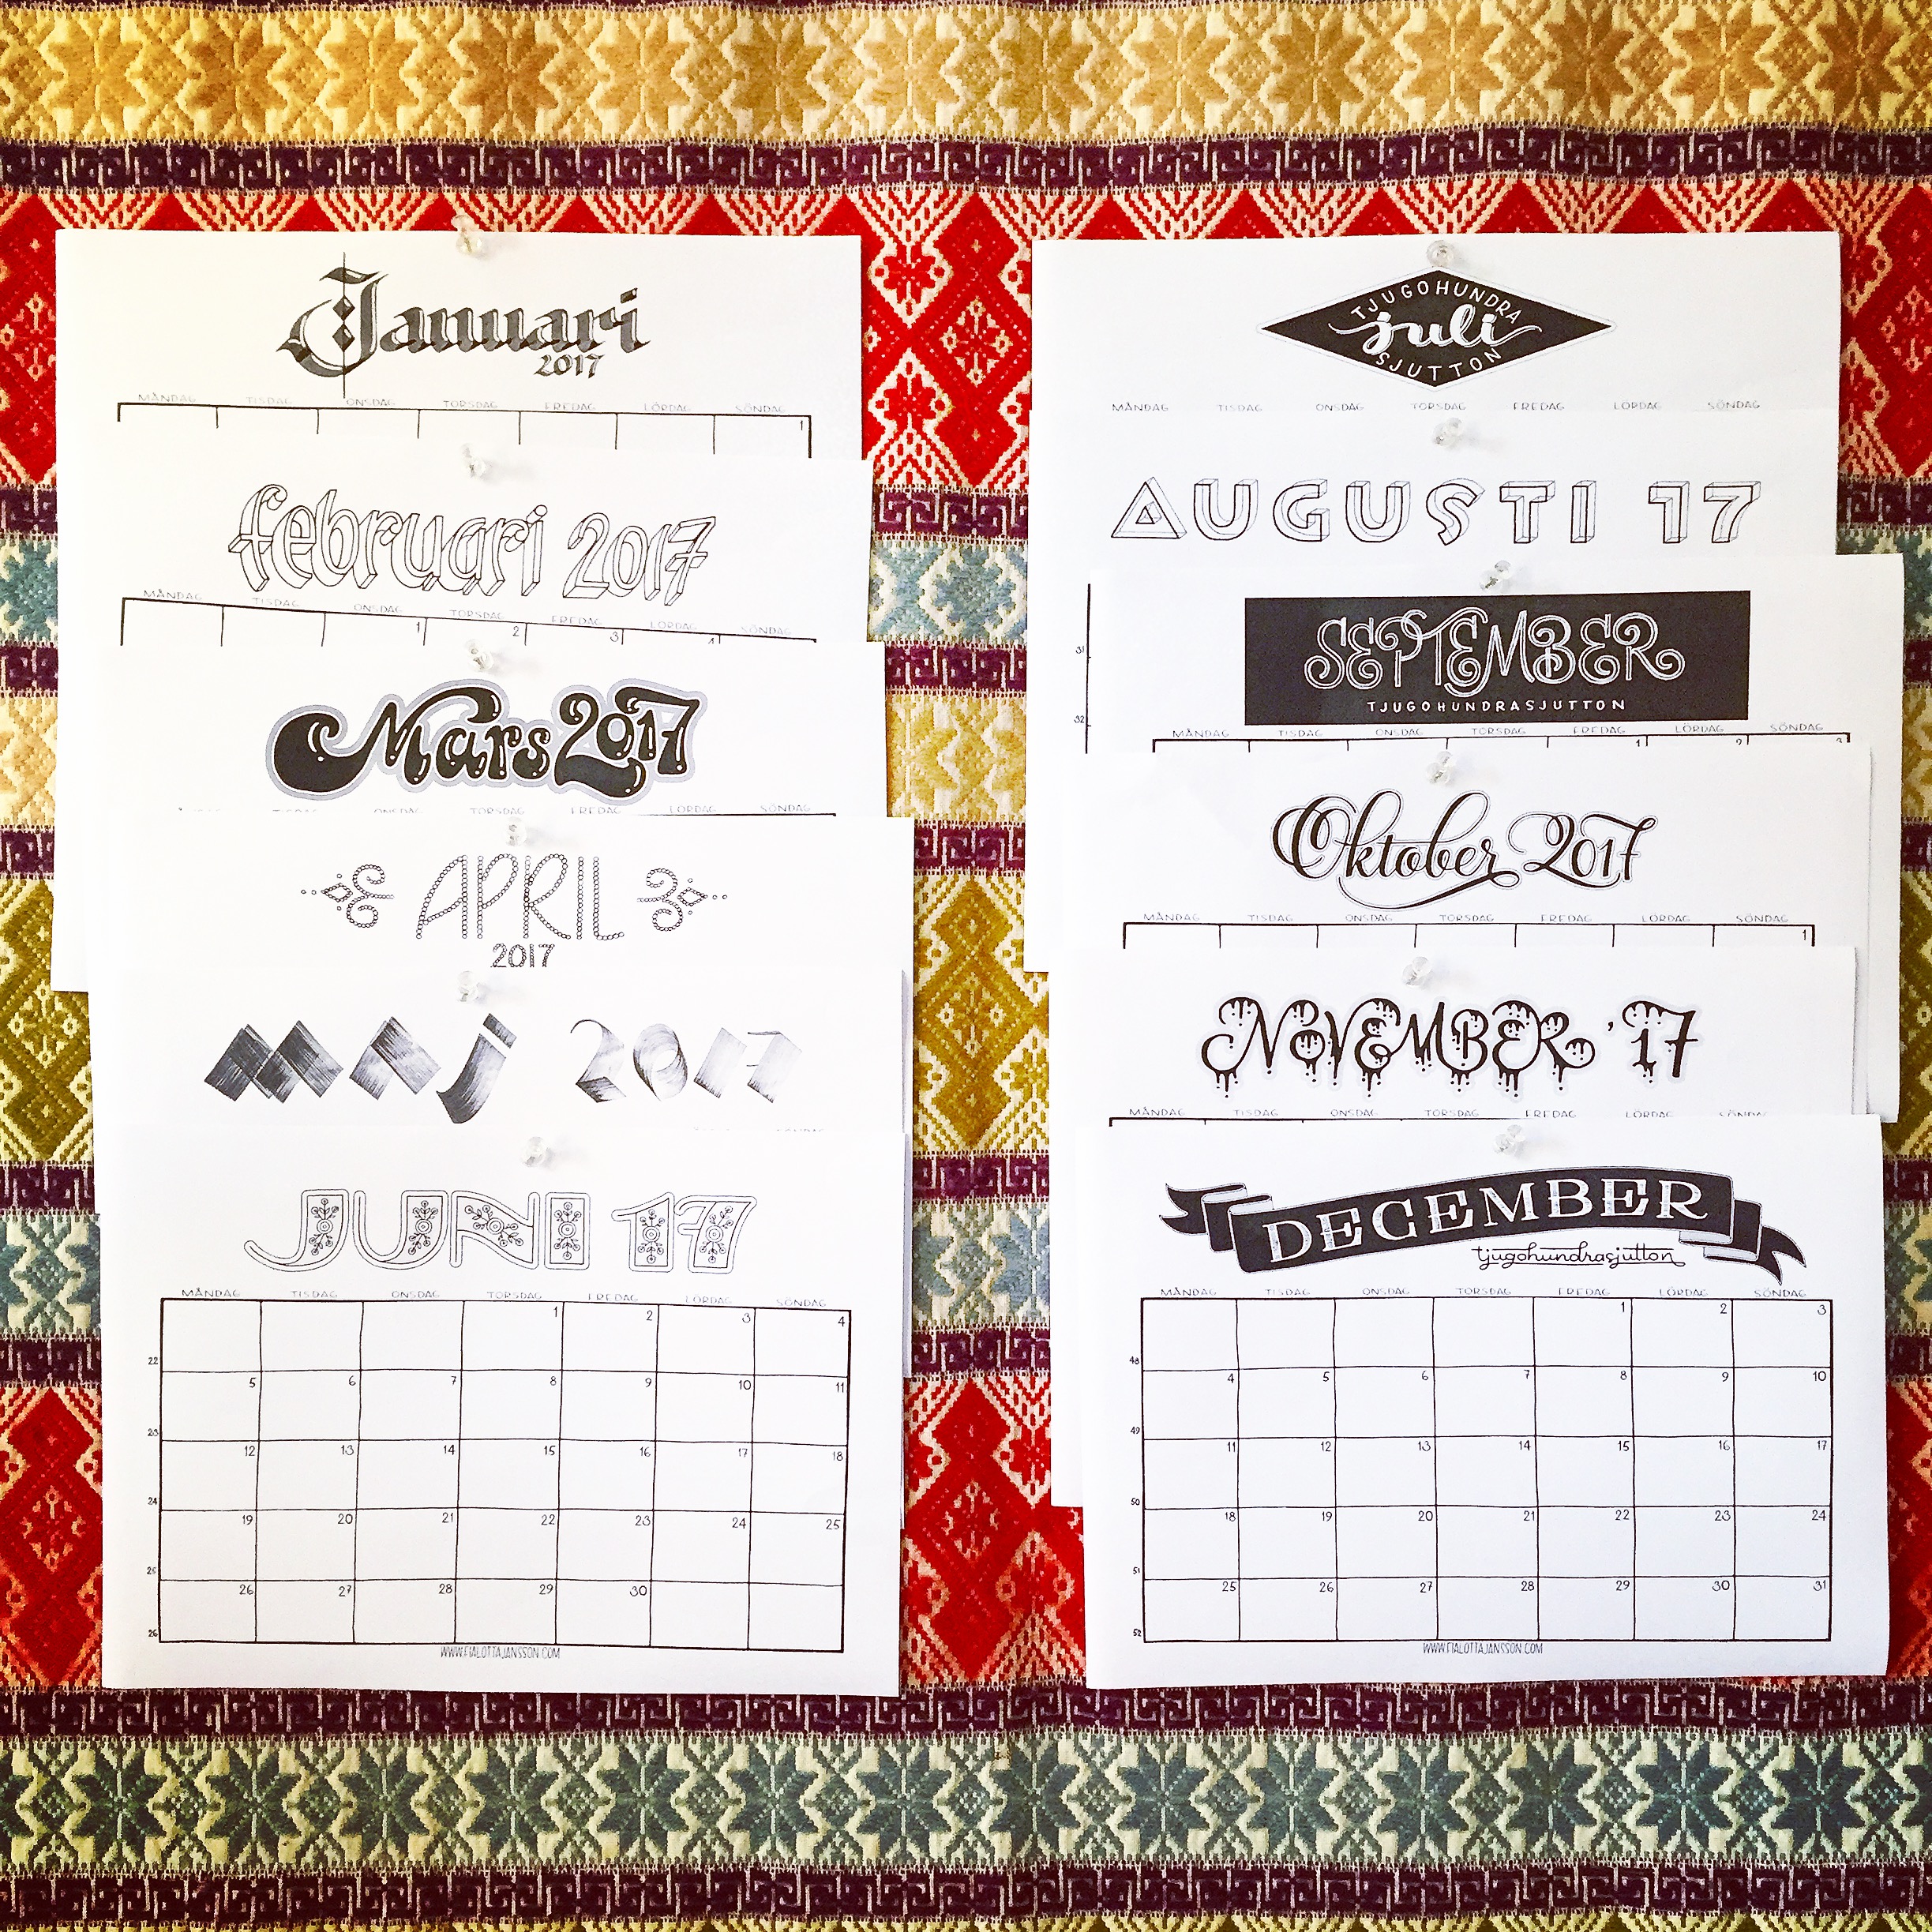 Januari
2017
MÅNDAG TISDAG ONSDAG TORSDAG FREDAG LÖRDAG SÖNDAG
1
februari 2017
MÅNDAG TISDAG ONSDAG TORSDAG FREDAG LÖRDAG SÖNDAG
1 2 3 4
Mars 2017
TISDAG ONSDAG TORSDAG FREDAG LÖRDAG SÖNDAG
APRIL
2017
MAJ 2017
JUNI 17
MÅNDAG TISDAG ONSDAG TORSDAG FREDAG LÖRDAG SÖNDAG
1 2 3 4
22
5 6 7 8 9 10 11
23
12 13 14 15 16 17 18
24
19 20 21 22 23 24 25
25
26 27 28 29 30
26
WWW.FIALOTTAJANSSON.COM
TJUGOHUNDRA
juli
SJUTTON
MÅNDAG TISDAG ONSDAG TORSDAG FREDAG LÖRDAG SÖNDAG
AUGUSTI 17
31
32
SEPTEMBER
TJUGOHUNDRASJUTTON
MÅNDAG TISDAG ONSDAG TORSDAG FREDAG LÖRDAG SÖNDAG
1 2 3
Oktober 2017
MÅNDAG TISDAG ONSDAG TORSDAG FREDAG LÖRDAG SÖNDAG
1
NOVEMBER '17
MÅNDAG TISDAG ONSDAG TORSDAG FREDAG LÖRDAG SÖNDAG
DECEMBER
tjugohundrasjutton
MÅNDAG TISDAG ONSDAG TORSDAG FREDAG LÖRDAG SÖNDAG
1 2 3
48
4 5 6 7 8 9 10
49
11 12 13 14 15 16 17
50
18 19 20 21 22 23 24
51
25 26 27 28 29 30 31
52
WWW.FIALOTTAJANSSON.COM